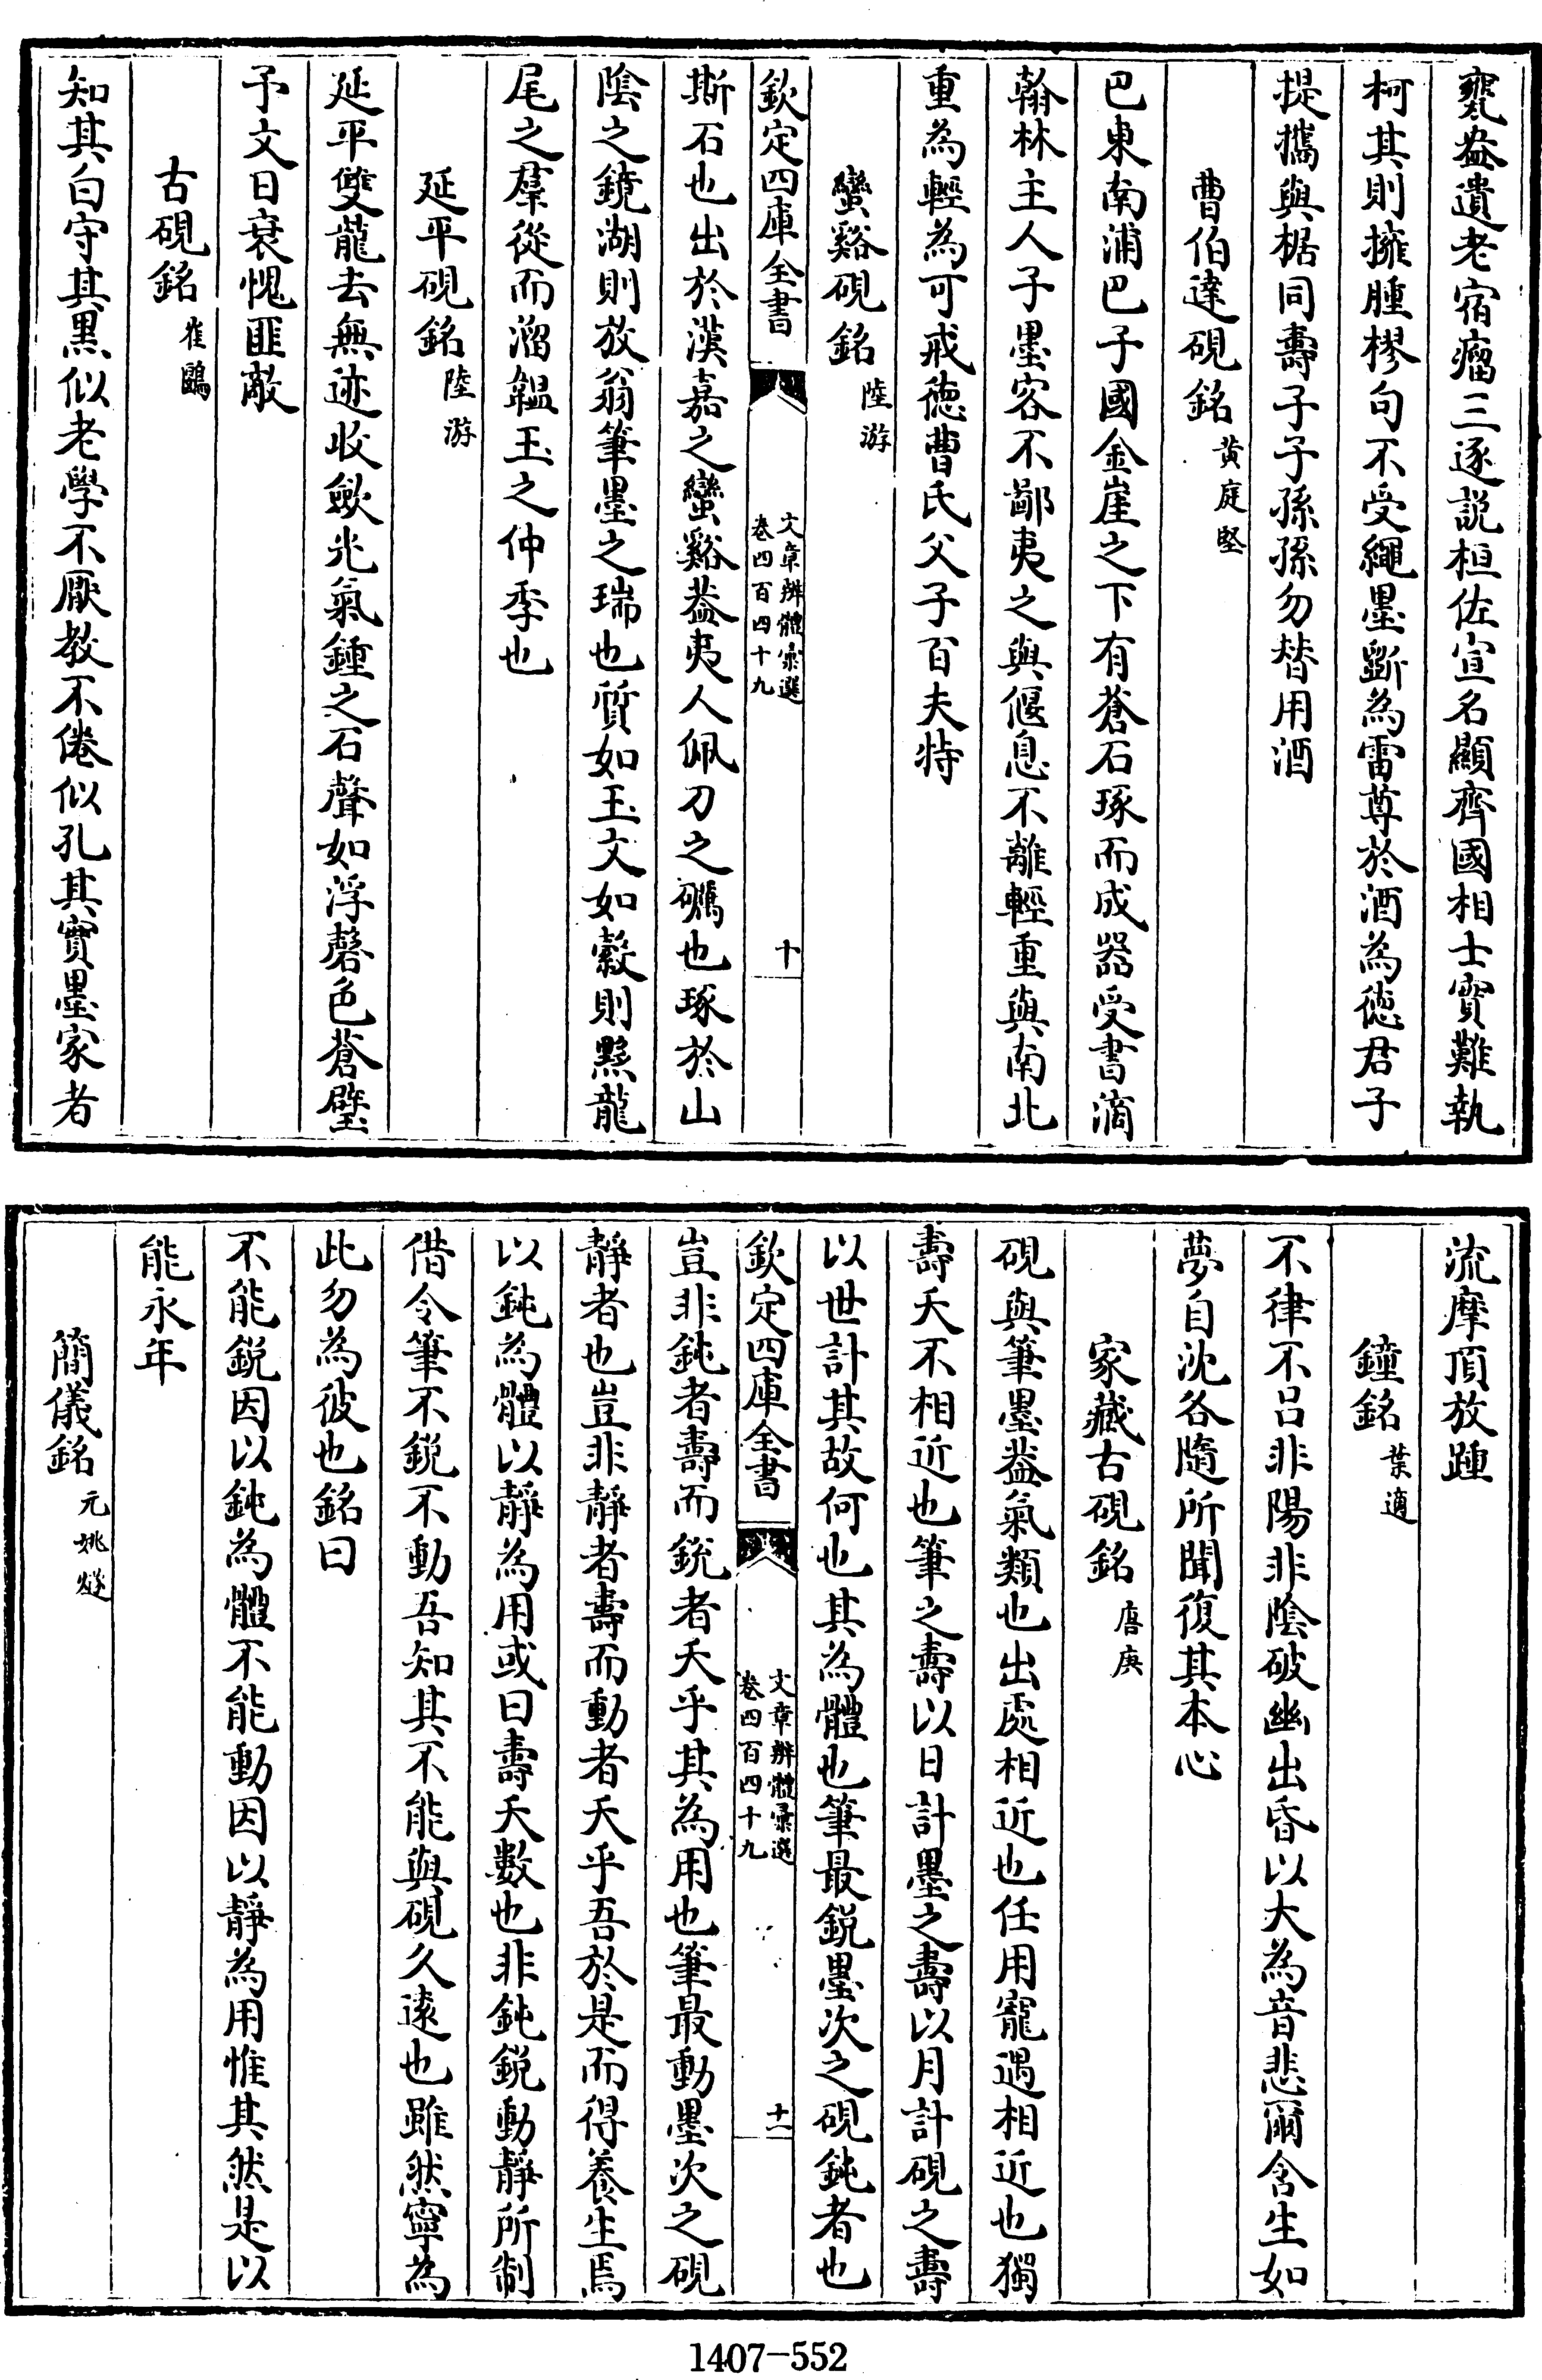 甕盎遺老宿瘤三逐説桓佐宣名顯齊國相士寳難執
柯其則擁腫樛句不受繩墨斵為雷尊於酒為徳君子
提攜與椐同壽子子孫孫勿替用酒
曹伯達硯銘黄庭堅
巴東南浦巴子國金崖之下有蒼石琢而成器受書滴
翰林主人子墨客不鄙夷之與偃息不離輕重與南北
重為輕為可戒徳曹氏父子百夫特
蠻谿硯銘陸游
欽定四庫全書
文章辨體彙選
卷四百四十九
十
斯石也出於漢嘉之蠻谿葢夷人佩刀之礪也琢於山
陰之鏡湖則放翁筆墨之瑞也質如玉文如縠則黟龍
尾之羣從而溜韞玉之仲季也
延平硯銘陸游
延平雙龍去無迹收歛光氣鍾之石聲如浮磬色蒼璧
予文日衰愧匪敵
古硯銘崔鷗
知其白守其黒似老學不厭教不倦似孔其實墨家者
流摩頂放踵
鐘銘葉適
不律不吕非陽非陰破幽出昏以大為音悲爾含生如
夢自沈各隨所聞復其本心
家藏古硯銘唐庚
硯與筆墨葢氣類也出處相近也任用寵遇相近也獨
壽夭不相近也筆之壽以日計墨之壽以月計硯之壽
以世計其故何也其為體也筆最鋭墨次之硯鈍者也
欽定四庫全書
文章辨體彙選
卷四百四十九
十一
豈非鈍者壽而鋭者夭乎其為用也筆最動墨次之硯
靜者也豈非靜者壽而動者夭乎吾於是而得養生焉
以鈍為體以靜為用或曰壽夭數也非鈍鋭動靜所制
借令筆不鋭不動吾知其不能與硯久逺也雖然寧為
此勿為彼也銘曰
不能鋭因以鈍為體不能動因以靜為用惟其然是以
能永年
簡儀銘元姚燧
1407-552